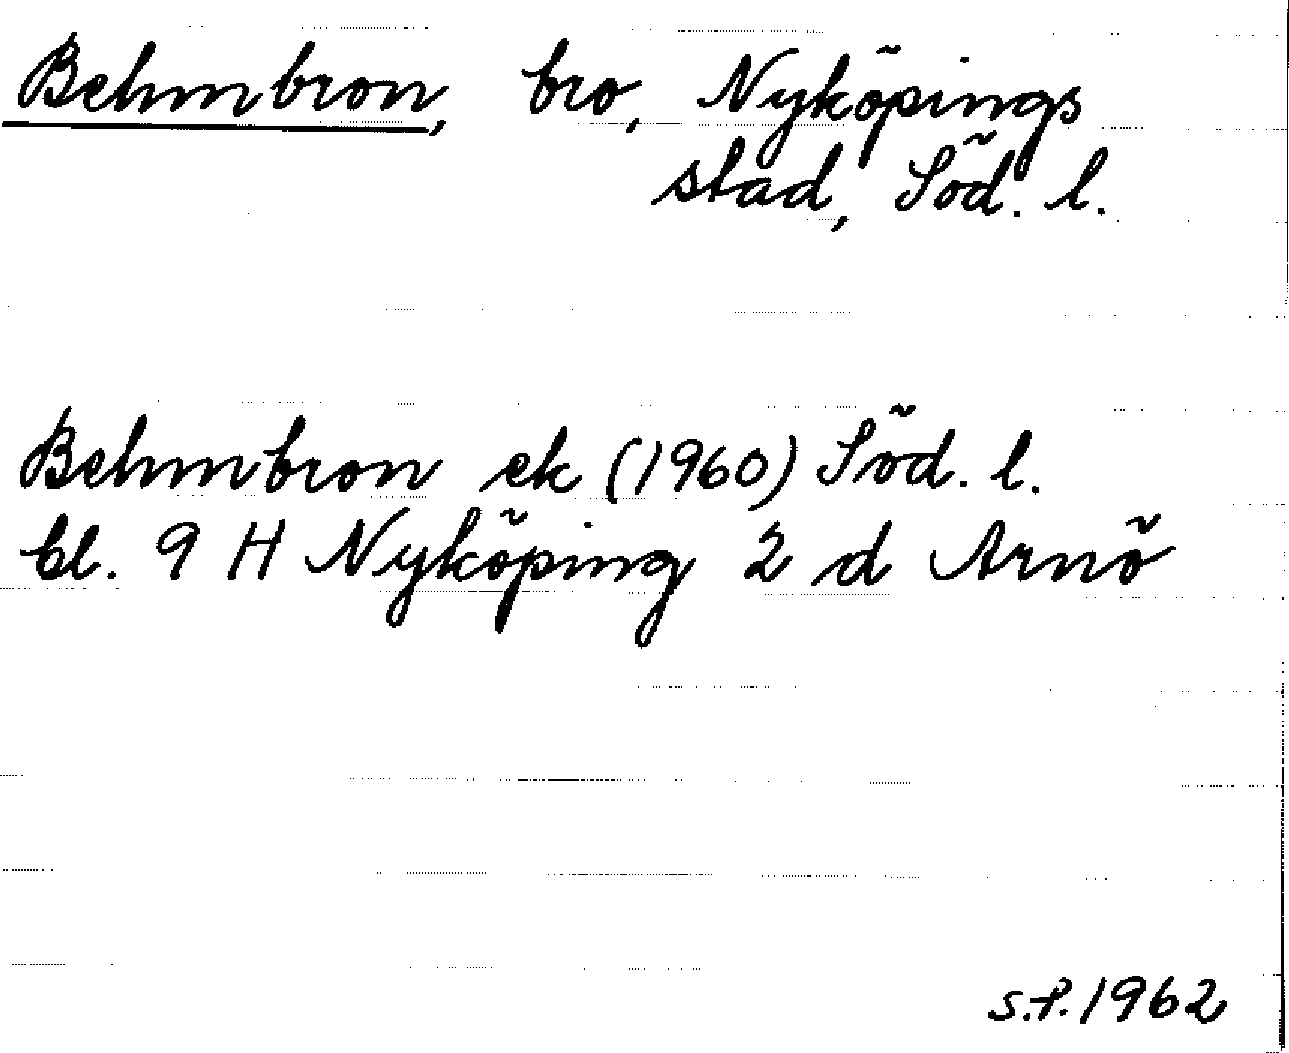 Behmbron, bro, Nyköpings
stad, Söd. l.
Behmbron ek (1960) Söd. l.
bl. 9 H Nyköping 2 d Arnö
s.f. 1962